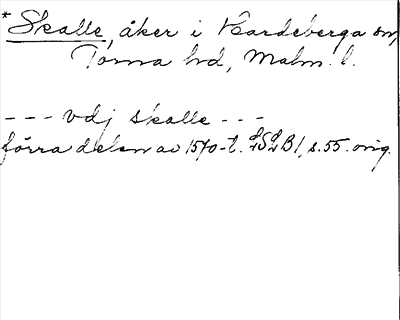 *Skalle, åker i Hardeberga sn,
Torna hd, Malm. l.
--- vdj skalle ---
förra delen av 1570-t. LSLB1, s. 55. orig.